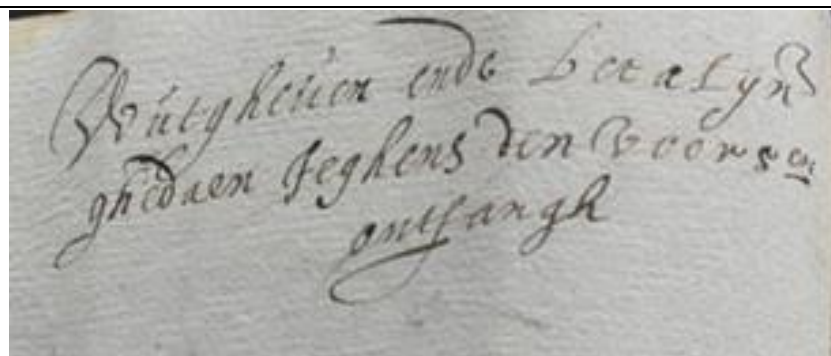 Wutgheuen ende betalyn
ghedaen Jeghens den voorsc
ontfangh